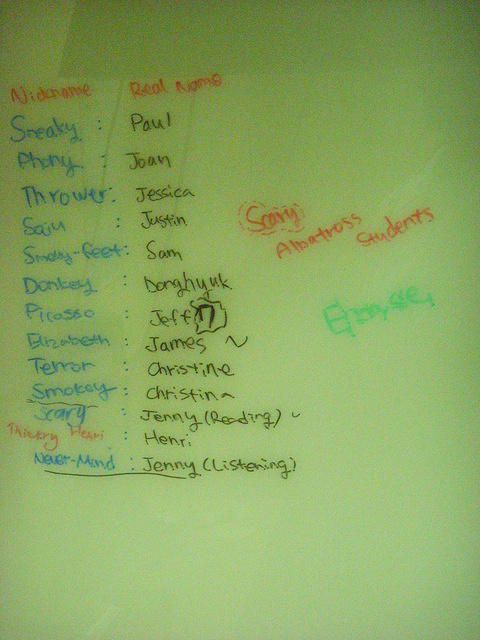 Nickname Real Name
Sneaky : Paul
Phony : Joan
Thrower : Jessica
Saiu : Justin
Smelly-feet : Sam
Donkey : Donghyuk
Picasso : Jeff
Elizabeth : James
Terror : Christine
Smokey : Christina
Scary : Jenny (Reading)
Thierry Henri : Henri
Never-Mind : Jenny (Listening)
Scary
Albatross Students